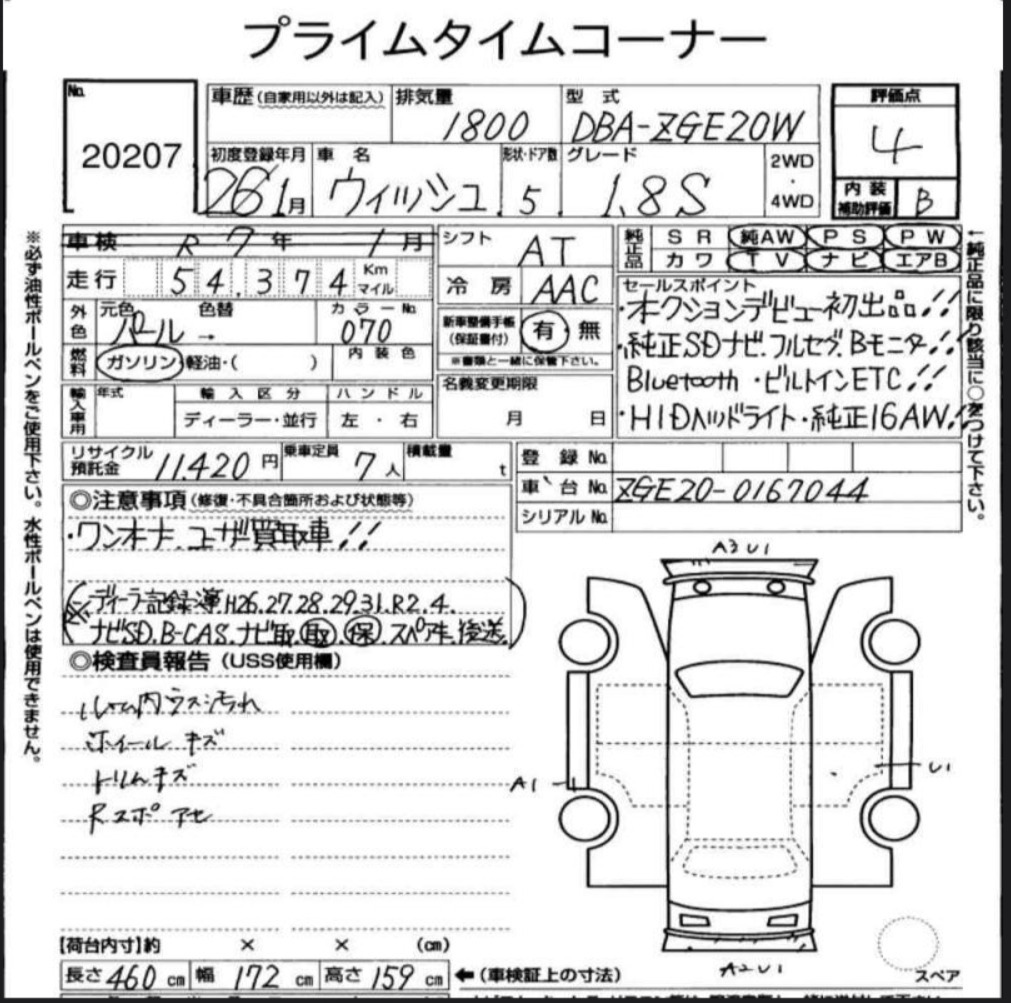 プライムタイムコーナー
No.
20207
車歴(自家用以外は記入)
排気量
1800
型 式
DBA-ZGE20W
評価点
4
初度登録年月
26 1月
車 名
ウィッシュ
形状・ドア数
5
グレード
1.8S
2WD
・
4WD
内装
補助評価
B
車検 R 7年 1月
走行 54.374 Km
マイル
シフト
AT
冷房
AAC
純正品
SR 純AW PS PW
カワ TV ナビ エアB
外色
元色
パール →
色替
カラーNo.
070
燃料
ガソリン・軽油・( )
内装色
新車整備手帳
(保証書付)
有・無
※書類と一緒に保管下さい。
セールスポイント
・オクションデビュー初出品!!
・純正SDナビ.フルセグ.Bモニタ!!
Bluetooth・ビルトインETC!!
・HIDヘッドライト・純正16AW!
輸入車用
年式
輸入区分
ディーラー・並行
ハンドル
左・右
名義変更期限
月 日
リサイクル
預託金
11.420円
乗車定員
7人
積載量
t
登録No.
車台No.
ZGE20-0167044
シリアルNo.
◎注意事項(修復・不具合箇所および状態等)
・ワンオナ.ユーザ買取車!!
ディーラ記録簿H26.27.28.29.31.R2.4.
ナビSD.B-CAS.ナビ取.取.保.スペアキ.後送.
◎検査員報告(USS使用欄)
ルーム内ウス汚れ
ホイールキズ
トリムキズ
Rスポアセ
A3 U1
A1
U1
A2 U1
スペア
【荷台内寸】約 × × (cm)
長さ460cm
幅172cm
高さ159cm
←(車検証上の寸法)
※必ず油性ボールペンをご使用下さい。水性ボールペンは使用できません。
←純正品に限り該当に○をつけて下さい。